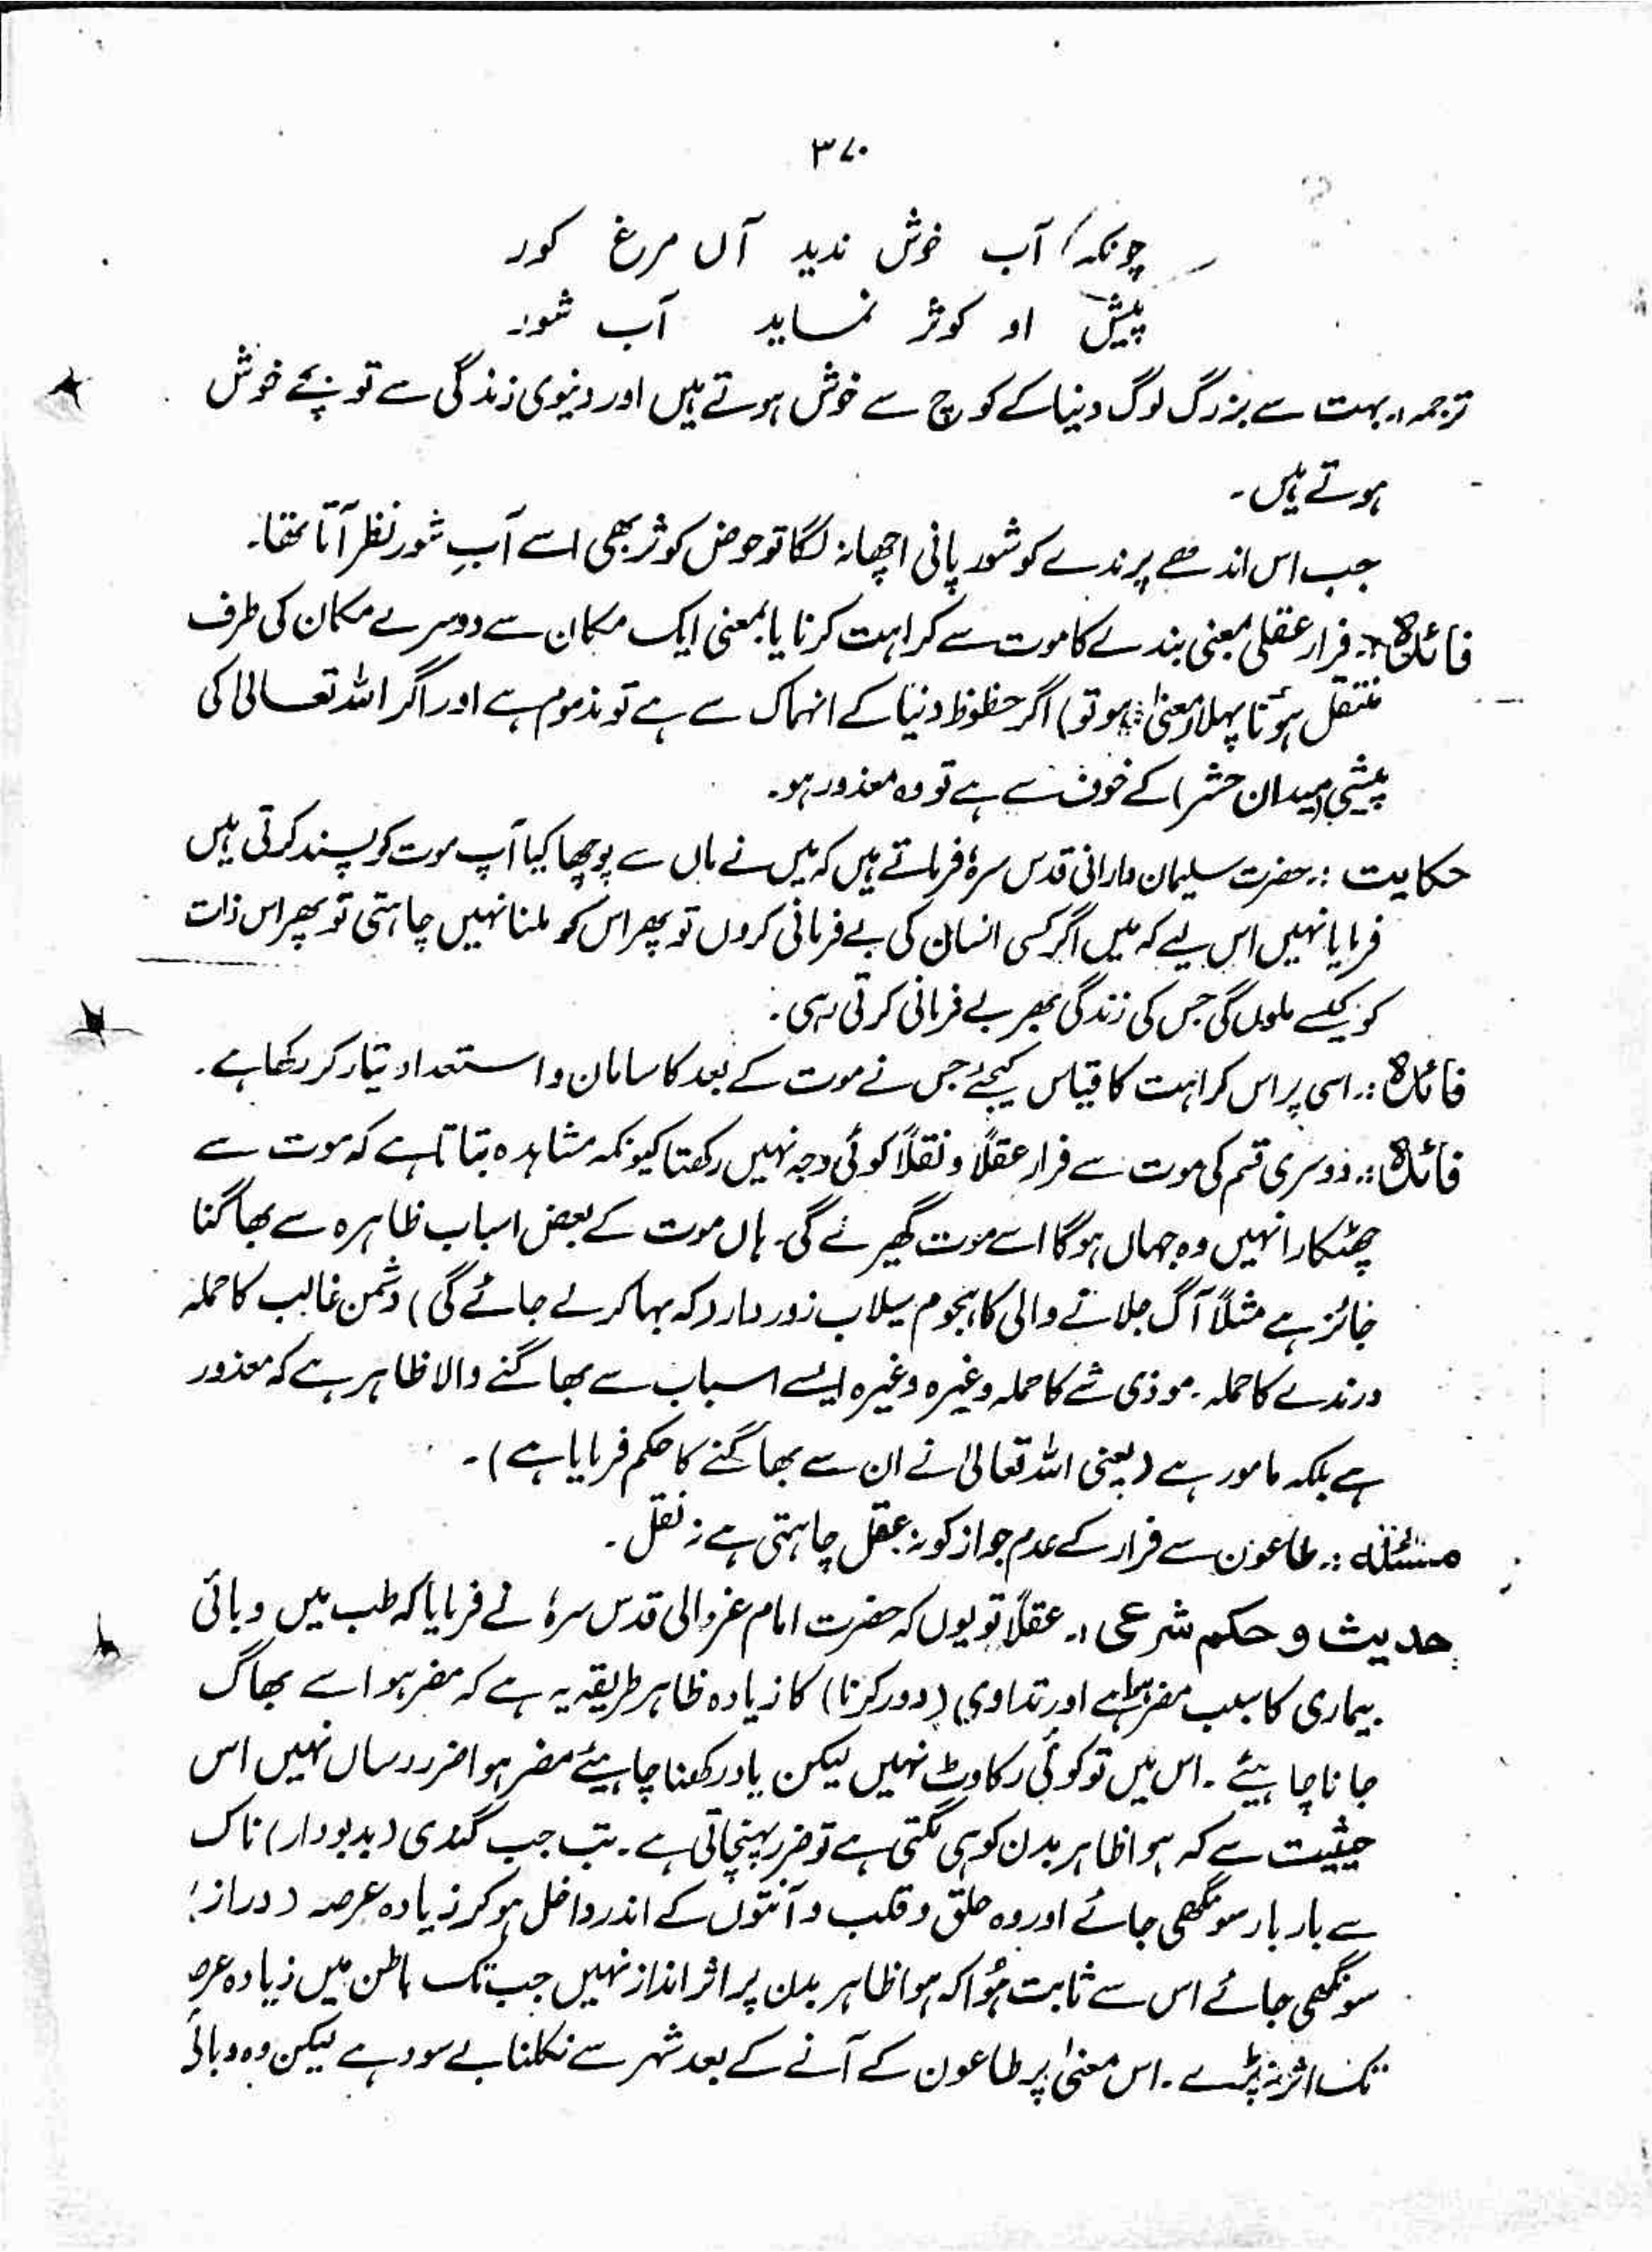 ۳۷۰
چونکہ آب خوش ندید آں مرغ کور
پیش او کوثر نماید آب شور
ترجمہ:۔ بہت سے بزرگ لوگ دنیا کے کوچ سے خوش ہوتے ہیں اور دنیوی زندگی سے تو بچے خوش
ہوتے ہیں۔
جب اس اندھے پرندے کو شور پانی اچھا نہ لگا تو حوض کوثر بھی اسے آبِ شور نظر آتا تھا۔
فائدہ:۔ فرار عقلی بمعنی بندے کا موت سے کراہت کرنا یا بمعنی ایک مکان سے دوسرے مکان کی طرف
منتقل ہونا پہلا معنیٰ (ہو تو) اگر حظوظ دنیا کے انہماک سے ہے تو مذموم ہے اور اگر اللہ تعالیٰ کی
پیشی (میدان حشر) کے خوف سے ہے تو وہ معذور ہو۔
حکایت :۔ حضرت سلیمان دارانی قدس سرہٗ فرماتے ہیں کہ میں نے ماں سے پوچھا کیا آپ موت کو پسند کرتی ہیں
فرمایا نہیں اس لیے کہ میں اگر کسی انسان کی بے فرمانی کروں تو پھر اس کو ملنا نہیں چاہتی تو پھر اس ذات
کو کیسے ملوں گی جس کی زندگی بھر بے فرمانی کرتی رہی۔
فائدہ :۔ اسی پر اس کراہت کا قیاس کیجئے جس نے موت کے بعد کا سامان و استعداد تیار کر رکھا ہے۔
فائدہ :۔ دوسری قسم کی موت سے فرار عقلاً و نقلاً کوئی وجہ نہیں رکھتا کیونکہ مشاہدہ بتاتا ہے کہ موت سے
چھٹکارا نہیں وہ جہاں ہوگا اسے موت گھیر لے گی۔ ہاں موت کے بعض اسباب ظاہرہ سے بھاگنا
جائز ہے مثلاً آگ جلانے والی کا ہجوم سیلاب زور دار (کہ بہا کر لے جائے گی) دشمن غالب کا حملہ
درندے کا حملہ۔ موذی شے کا حملہ وغیرہ وغیرہ ایسے اسباب سے بھاگنے والا ظاہر ہے کہ معذور
ہے بلکہ مامور ہے (یعنی اللہ تعالیٰ نے ان سے بھاگنے کا حکم فرمایا ہے)۔
مسئلہ :۔ طاعون سے فرار کے عدم جواز کو نہ عقل چاہتی ہے نہ نقل۔
حدیث و حکم شرعی :۔ عقلاً تو یوں کہ حضرت امام غزالی قدس سرہٗ نے فرمایا کہ طب میں وبائی
بیماری کا سبب مضر ہوا ہے اور تداوی (دور کرنا) کا زیادہ ظاہر طریقہ یہ ہے کہ مضر ہوا سے بھاگ
جانا چاہیئے۔ اس میں تو کوئی رکاوٹ نہیں لیکن یاد رکھنا چاہیئے مضر ہوا ضرر رساں نہیں اس
حیثیت سے کہ ہوا ظاہر بدن کو ہی لگتی ہے تو ضرر پہنچاتی ہے۔ تب جب گندی (بدبودار) ناک
سے بار بار سونگھی جائے اور وہ حلق و قلب و آنتوں کے اندر داخل ہو کر زیادہ عرصہ (دراز)
سونگھی جائے اس سے ثابت ہُوا کہ ہوا ظاہر بدن پر اثر انداز نہیں جب تک باطن میں زیادہ عرصہ
تک اثر نہ پڑے۔ اس معنیٰ پر طاعون کے آنے کے بعد شہر سے نکلنا بے سود ہے لیکن وہ وبائی